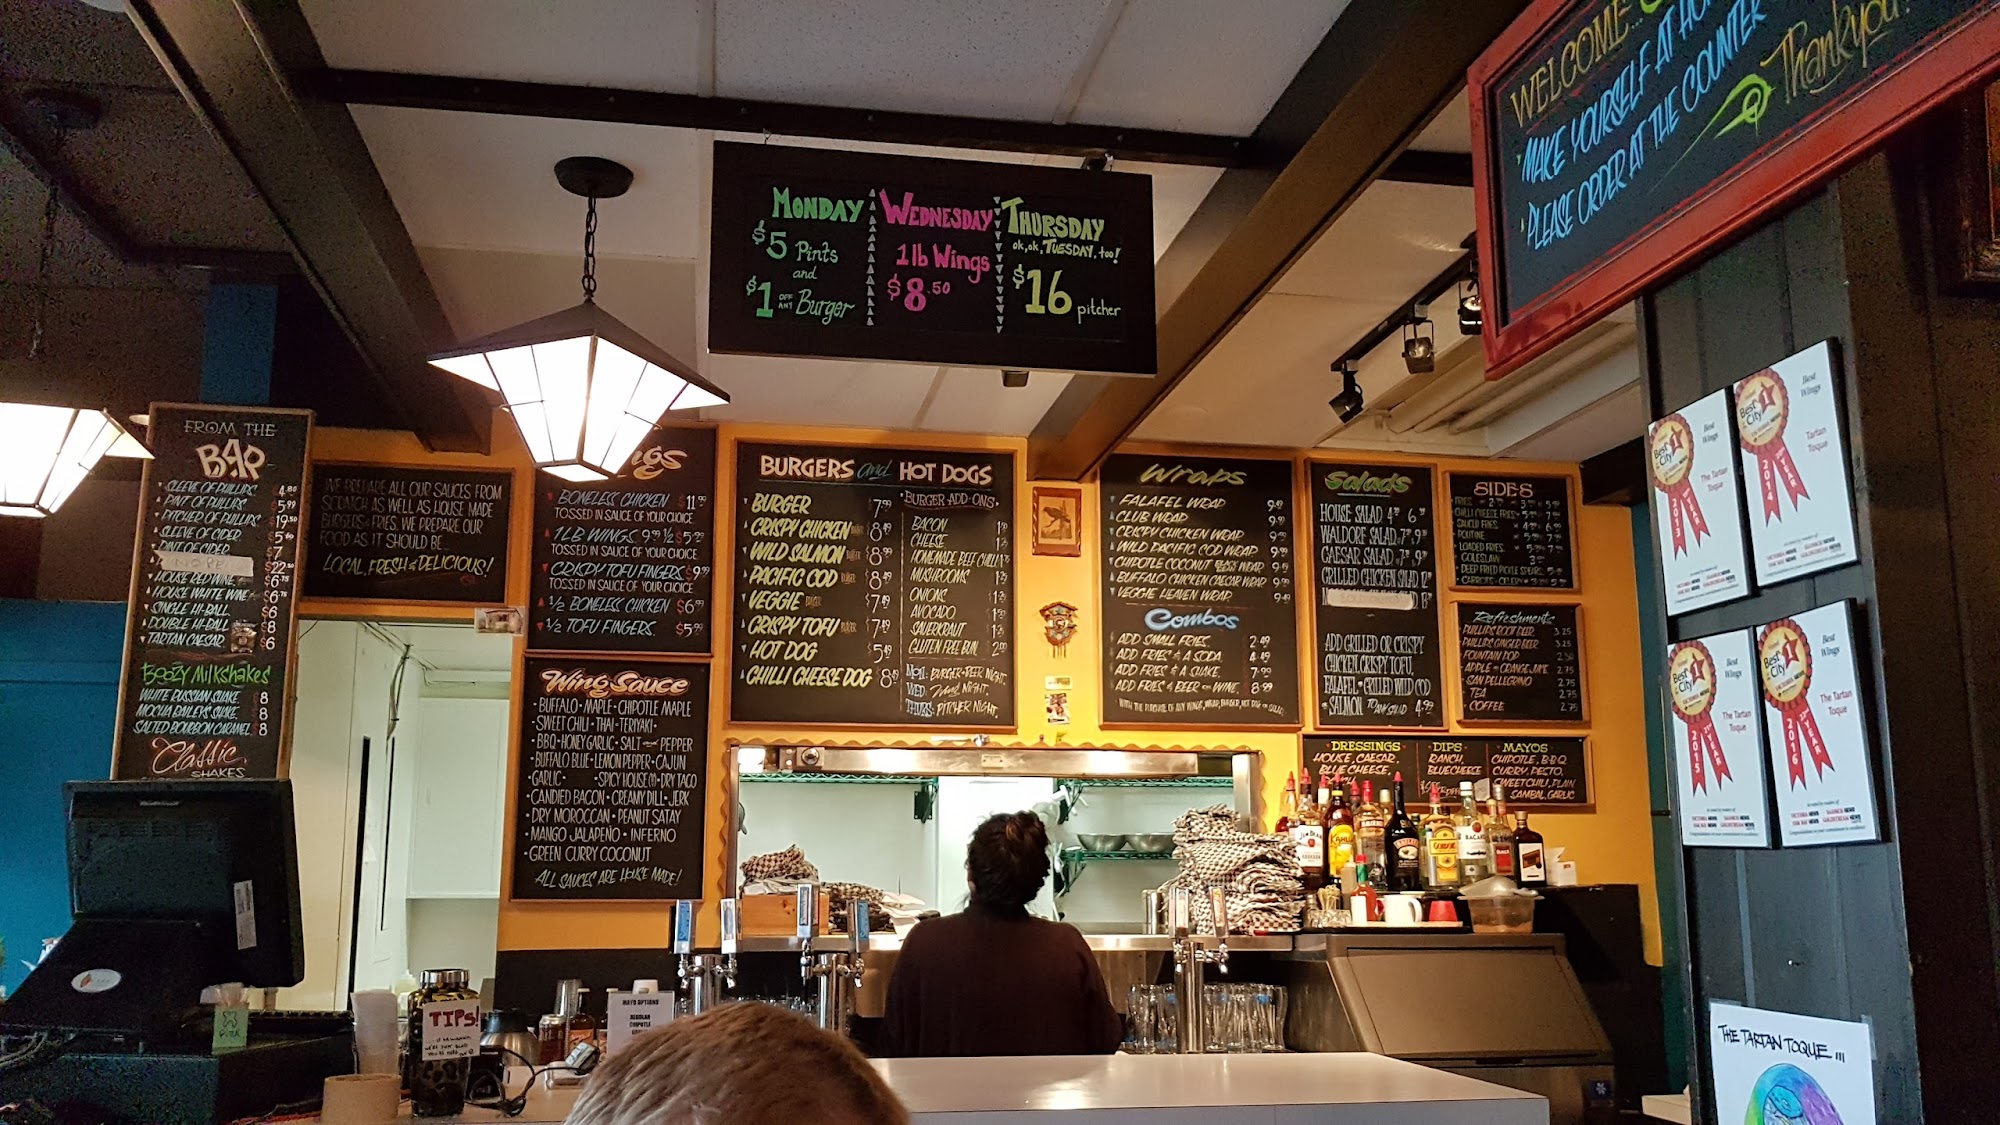 WELCOME...
MAKE YOURSELF AT
PLEASE ORDER AT THE COUNTER
Thankyou!
MONDAY
$5 Pints
and
$1 OFF ANY Burger
WEDNESDAY
1lb Wings
$8.50
THURSDAY
ok, ok, TUESDAY, too!
$16 pitcher
FROM THE
BAR
SLEEVE OF PHILLIPS $4.80
PINT OF PHILLIPS $5.99
PITCHER OF PHILLIPS $19.50
SLEEVE OF CIDER $5.60
PINT OF CIDER $7
$22.50
HOUSE RED WINE $6.75
HOUSE WHITE WINE $6.75
SINGLE HI-BALL $6
DOUBLE HI-BALL $8
TARTAN CAESAR $6
BOOZY MILKSHAKES
WHITE RUSSIAN SHAKE 8
MOCHA BAILEYS SHAKE 8
SALTED BOURBON CARAMEL 8
Classic
SHAKES
WE PREPARE ALL OUR SAUCES FROM
SCRATCH AS WELL AS HOUSE MADE
BURGERS & FRIES. WE PREPARE OUR
FOOD AS IT SHOULD BE...
LOCAL, FRESH & DELICIOUS!
BONELESS CHICKEN $11.99
TOSSED IN SAUCE OF YOUR CHOICE.
1LB WINGS 9.99 ½ $5.99
TOSSED IN SAUCE OF YOUR CHOICE
CRISPY TOFU FINGERS $9.99
TOSSED IN SAUCE OF YOUR CHOICE
½ BONELESS CHICKEN $6.99
½ TOFU FINGERS. $5.99
Wing Sauce
• BUFFALO • MAPLE • CHIPOTLE MAPLE
• SWEET CHILI • THAI • TERIYAKI •
• BBQ • HONEY GARLIC • SALT and PEPPER
BUFFALO BLUE • LEMON PEPPER • CAJUN
• GARLIC • SPICY HOUSE • DRY TACO
• CANDIED BACON • CREAMY DILL • JERK
• DRY MOROCCAN • PEANUT SATAY
• MANGO JALAPEÑO • INFERNO
• GREEN CURRY COCONUT
ALL SAUCES ARE HOUSE MADE!
BURGERS and HOT DOGS
BURGER $7.99
CRISPY CHICKEN BURGER $8.49
WILD SALMON BURGER $8.99
PACIFIC COD BURGER $8.49
VEGGIE BURGER $7.49
CRISPY TOFU BURGER $7.49
HOT DOG $5.49
CHILLI CHEESE DOG 8.49
• BURGER ADD-ONS •
BACON
CHEESE
HOMEMADE BEEF CHILLI
MUSHROOMS
ONIONS
AVOCADO
SAUERKRAUT
GLUTEN FREE BUN 2.00
MON: BURGER & BEER NIGHT.
WED: Wing NIGHT.
THURS: PITCHER NIGHT.
Wraps
FALAFEL WRAP 9.49
CLUB WRAP 9.99
CRISPY CHICKEN WRAP 9.99
WILD PACIFIC COD WRAP 9.99
CHIPOTLE COCONUT WRAP 9.99
BUFFALO CHICKEN CAESAR WRAP 9.99
VEGGIE HEAVEN WRAP 9.49
Combos
ADD SMALL FRIES 2.49
ADD FRIES & A SODA 4.49
ADD FRIES & A SHAKE. 7.99
ADD FRIES & BEER or WINE 8.99
WITH THE PURCHASE OF ANY WINGS, WRAP, BURGER, HOT DOG or SALAD
Salads
HOUSE SALAD
WALDORF SALAD
CAESAR SALAD
GRILLED CHICKEN SALAD
ADD GRILLED OR CRISPY
CHICKEN, CRISPY TOFU,
FALAFEL • GRILLED WILD COD
or SALMON TO ANY SALAD 4.99
SIDES
FRIES
CHILLI CHEESE FRIES
SAUCED FRIES
POUTINE
LOADED FRIES
COLESLAW
DEEP FRIED PICKLE SPEARS
CARROTS & CELERY
Refreshments
PHILLIPS ROOT BEER 3.25
PHILLIPS GINGER BEER 3.25
FOUNTAIN POP 2.50
APPLE or ORANGE JUICE 2.75
SAN PELLEGRINO 2.75
TEA 2.75
COFFEE 2.75
DRESSINGS
HOUSE, CAESAR,
BLUE CHEESE,
DIPS
RANCH,
BLUE CHEESE
MAYOS
CHIPOTLE, B•B•Q
CURRY, PESTO,
SWEET CHILI, PLAIN
SAMBAL, GARLIC
Best of the City 1
Best Wings
The Tartan Toque
2013
Best of the City 1
Best Wings
Tartan Toque
2014
Best of the City 1
Best Wings
The Tartan Toque
2015
Best of the City 1
Best Wings
The Tartan Toque
2016
THE TARTAN TOQUE
TIPS!
MAYO OPTIONS
REGULAR
CHIPOTLE